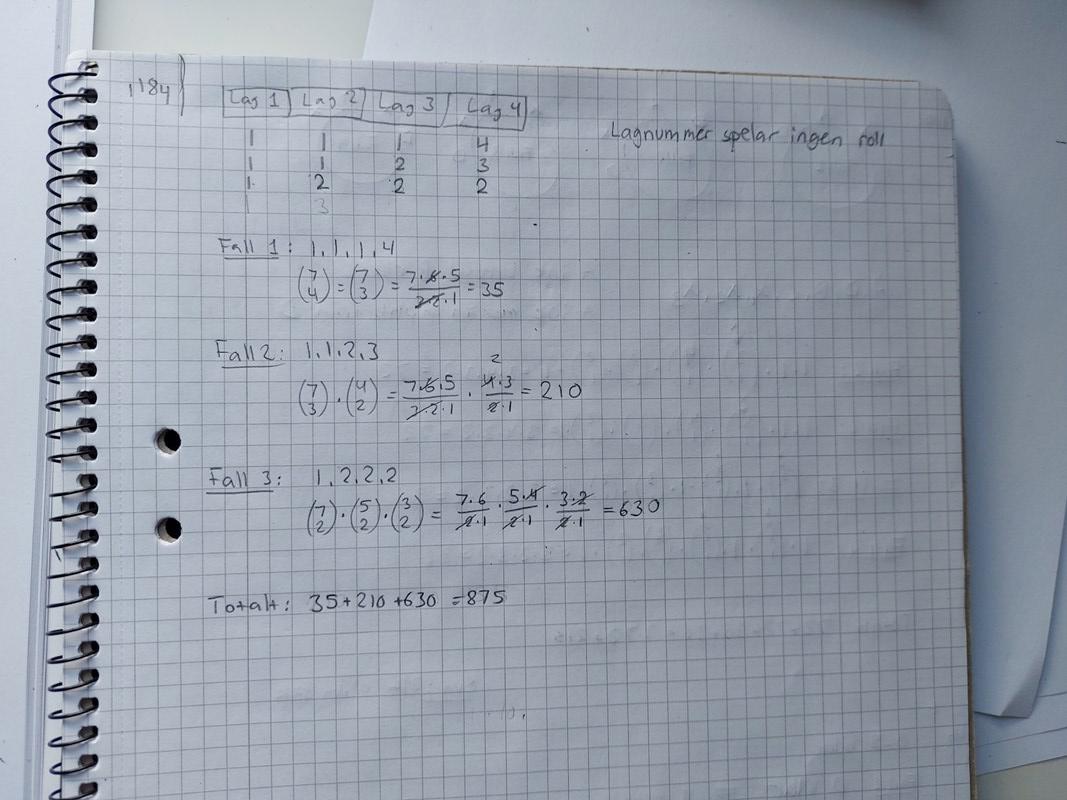 1184)
Lag 1 Lag 2 Lag 3 Lag 4
Lagnummer spelar ingen roll
1 1 1 4
1 1 2 3
1 2 2 2
1 3
Fall 1: 1,1,1,4
(7 4) = (7 3) = 7·6·5 / 3·2·1 = 35
Fall 2: 1,1,2,3
(7 3) · (4 2) = 7·6·5 / 3·2·1 · 4·3 / 2·1 = 210
2
Fall 3: 1,2,2,2
(7 2) · (5 2) · (3 2) = 7·6 / 2·1 · 5·4 / 2·1 · 3·2 / 2·1 = 630
Totalt: 35+210+630 = 875